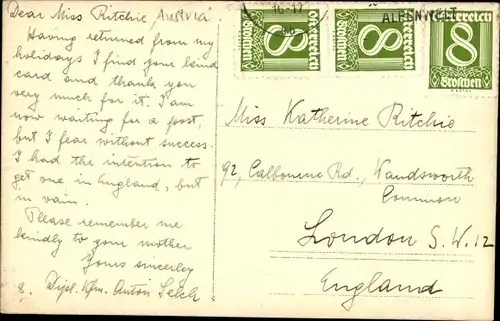 Dear Miss Ritchie Austria
Having returned from my
holidays I find your kind
card and thank you
very much for it. I am
now waiting for a post,
but I fear without success.
I had the intention to
get one in England, but
in vain.
Please remember me
kindly to your mother
Yours sincerley
Dipl. Kfm. Anton Selch
16-17
ALPENWELT
Österreich
8
Groschen
Österreich
8
Groschen
Österreich
8
Groschen
Miss Katherine Ritchie
92, Calbourne Rd., Wandsworth
Common
London S.W. 12
England